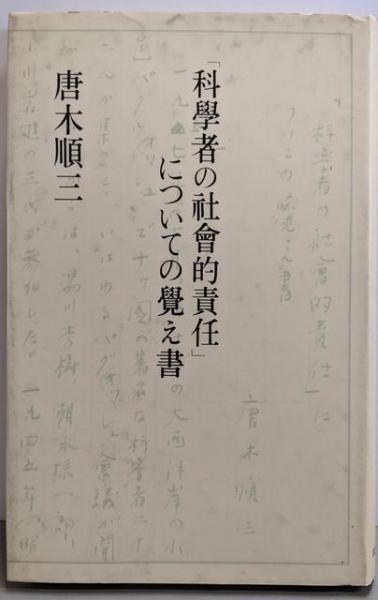 「科學者の社會的責任」
についての覺え書
唐木順三
「科学者の社会的責任」に
ついての覚え書
唐木順三
一九 七 の大西洋岸の小
パグウォッシュで十ヶ国の著名な科学者二十
二人が集って、いはゆるパグウォッシュ会議が開
は、湯川秀樹、朝永振一郎、
小川岩雄の三氏が参加した。一九四五年(昭